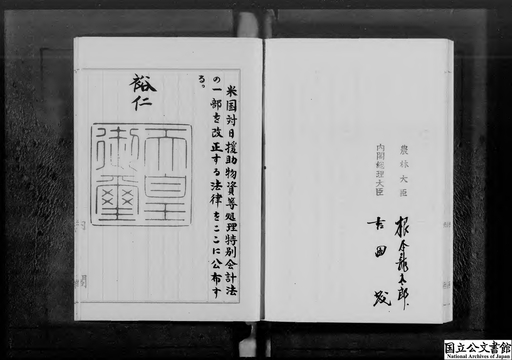 米国対日援助物資等処理特別会計法
の一部を改正する法律をここに公布す
る。
裕仁
天皇
御璽
農林大臣
根本龍太郎
内閣総理大臣
吉田茂
国立公文書館
National Archives of Japan